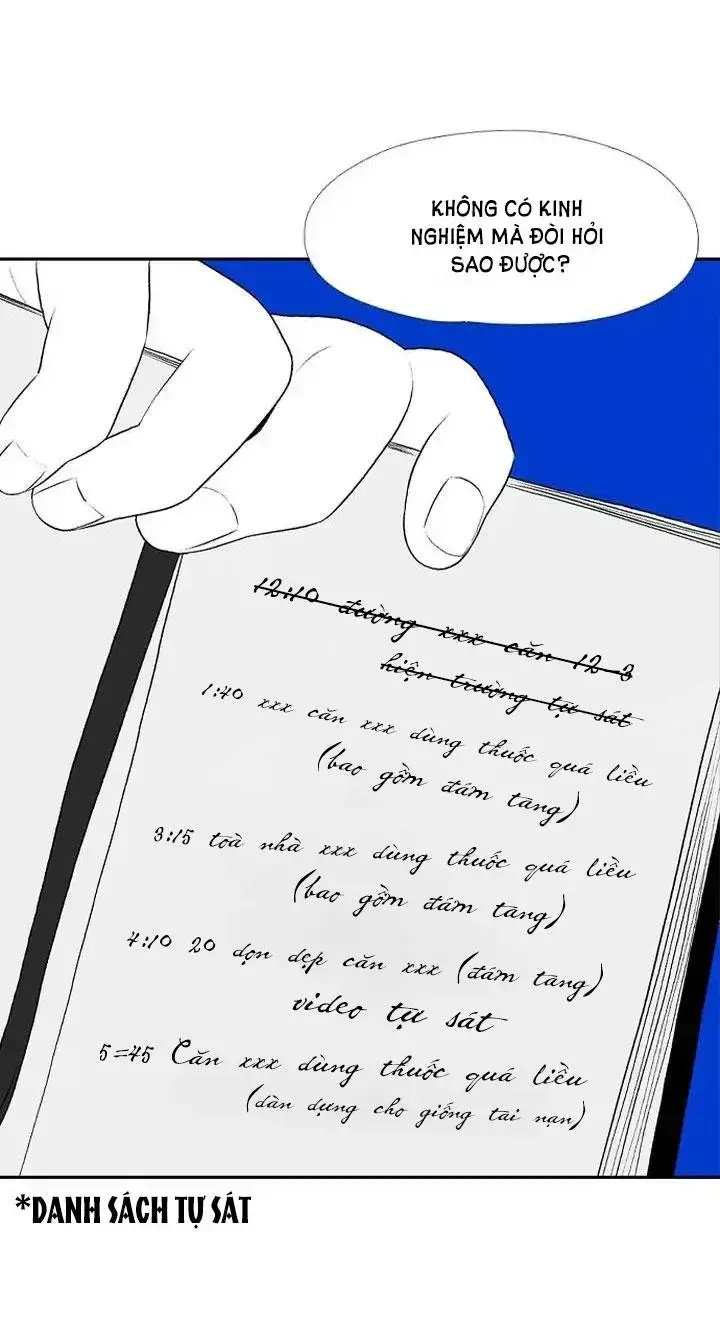 KHÔNG CÓ KINH
NGHIỆM MÀ ĐÒI HỎI
SAO ĐƯỢC?
12:10 đường xxx căn 12-3
hiện trường tự sát
1:40 xxx căn xxx dùng thuốc quá liều
(bao gồm đám tang)
3:15 toà nhà xxx dùng thuốc quá liều
(bao gồm đám tang)
4:10 20 dọn dẹp căn xxx (đám tang)
video tự sát
5=45 Căn xxx dùng thuốc quá liều
(dàn dựng cho giống tai nạn)
*DANH SÁCH TỰ SÁT